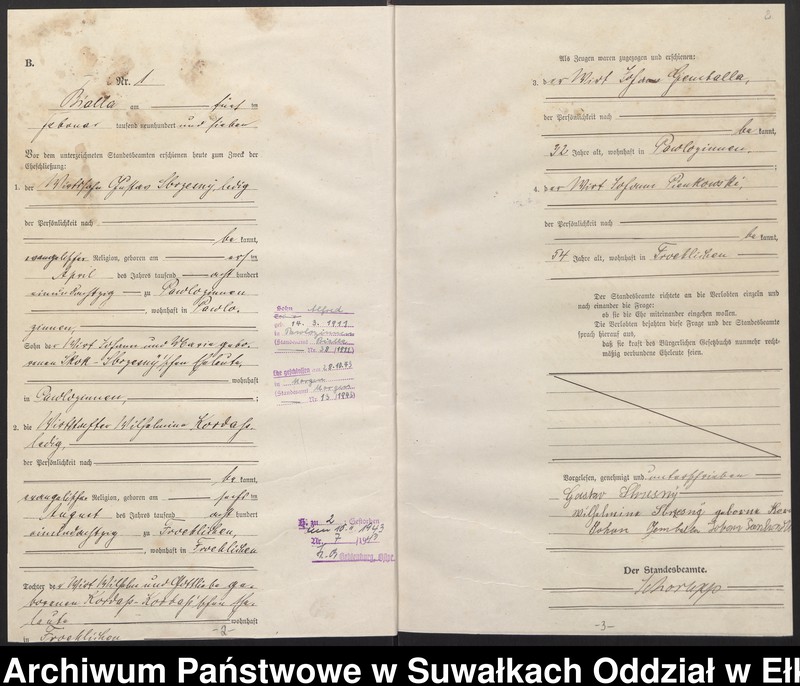 B.
Nr. 1
Bialla am fünf in
februar tausend neunhundert und sieben
Vor dem unterzeichneten Standesbeamten erschienen heute zum Zweck der
Eheschließung:
1. der Wirtssohn Gustav Skrzesny, ledig
der Persönlichkeit nach
be kannt,
evangelischer Religion, geboren am elf in
April des Jahres tausend acht hundert
einundachtzig zu Pawlozinnen
, wohnhaft in Pawlo-
zinnen,
Sohn der Wirt Johann und Marie gebo-
renen Skok - Skrzesny'schen Eheleute,
wohnhaft
in Pawlozinnen, ;
2. die Wirtstochter Wilhelmine Kordaß,
ledig,
der Persönlichkeit nach
be kannt,
evangelischer Religion, geboren am sechs in
August des Jahres tausend acht hundert
einundachtzig zu Froehlichen,
, wohnhaft in Froehlichen
Tochter der Wirt Wilhelm und Gottliebe ge-
borenen Kordaß-Kordaß'schen Ehe-
leute wohnhaft
in Froehlichen
-2-
Sohn Alfred
geb. 14. 3. 1911
in Pawlozinnen
(Standesamt Bialla
Nr. 28 /1911)
Ehe geschlossen am 28.12.43
in Morgen
(Standesamt Morgen
Nr. 13 /1943)
B. zu 2 Gestorben
am 1943
Nr. 7 /1943
Gehlenburg, Ostpr.
Als Zeugen waren zugezogen und erschienen:
3. der Wirt Johann Gemballa,
der Persönlichkeit nach
be kannt,
32 Jahre alt, wohnhaft in Pawlozinnen,
4. der Wirt Johann Pienkowski,
der Persönlichkeit nach
be kannt,
54 Jahre alt, wohnhaft in Froehlichen
Der Standesbeamte richtete an die Verlobten einzeln und
nach einander die Frage:
ob sie die Ehe miteinander eingehen wollen.
Die Verlobten bejahten diese Frage und der Standesbeamte
sprach hierauf aus,
daß sie kraft des Bürgerlichen Gesetzbuchs nunmehr recht-
mäßig verbundene Eheleute seien.
Vorgelesen, genehmigt und unterschrieben
Gustav
Wilhelmine geborne
Johan
Der Standesbeamte.
-3-
Archiwum Państwowe w Suwałkach Oddział w Ełk